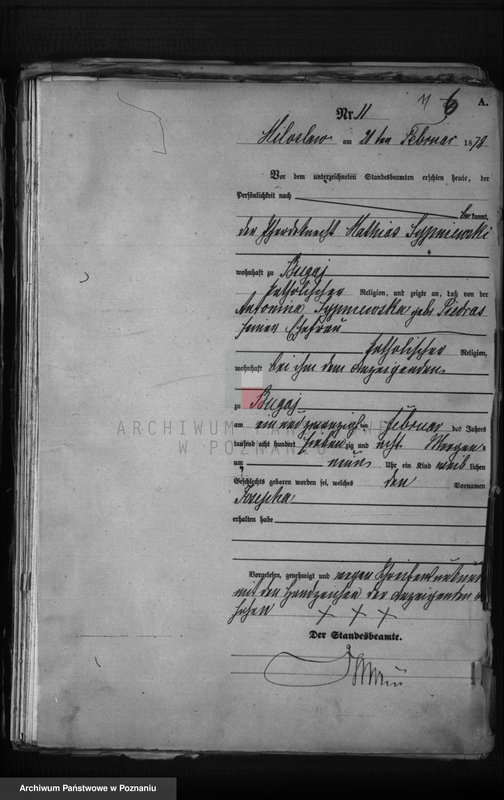 A.
Nr. 11
Miloslaw am 21ten Februar 1878
Vor dem unterzeichneten Standesbeamten erschien heute, der
Persönlichkeit nach
bekannt,
der Pferdeknecht Mathias Szypniewski
wohnhaft zu Bugaj
katholischer Religion, und zeigte an, daß von der
Antonina Szypniewska geb.
seiner Ehefrau
katholischer Religion,
wohnhaft bei ihm dem Anzeigenden
zu Bugaj
am ein und zwanzigsten Februar des Jahres
tausend acht hundert siebenzig und acht Morgens
um neun Uhr ein Kind weiblichen
Geschlechts geboren worden sei, welches den Vornamen
erhalten habe
Vorgelesen, genehmigt und wegen Schreibensunkunde
mit den Handzeichen der Anzeigenden
+ + +
Der Standesbeamte.
ARCHIWUM PAŃSTWOWE
W POZNANIU
Archiwum Państwowe w Poznaniu